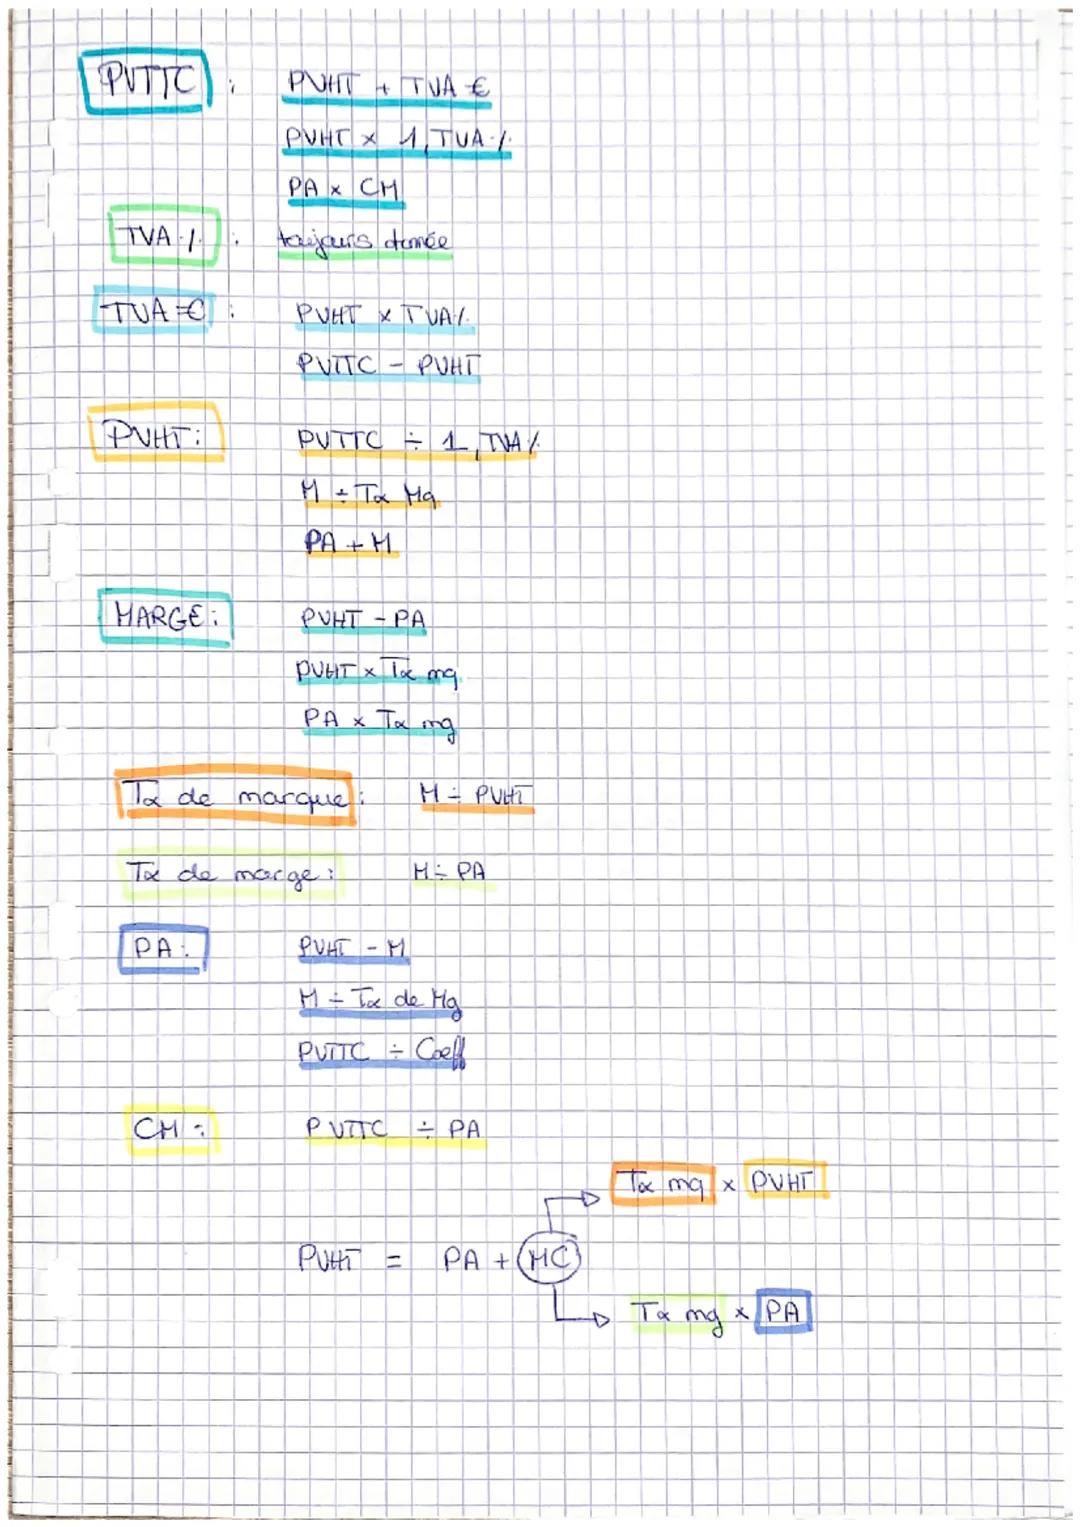 PVTTC : PVHT + TVA €
PVHT x 1,TVA%
PA x CM
TVA % : toujours donnée
TVA € : PVHT x TVA%
PVTTC - PVHT
PVHT : PVTTC ÷ 1,TVA%
M ÷ Tx Mq
PA + M
MARGE : PVHT - PA
PVHT x Tx mq
PA x Tx mg
Tx de marque : M ÷ PVHT
Tx de marge : M ÷ PA
PA : PVHT - M
M ÷ Tx de Mg
PVTTC ÷ Coeff
CM : PVTTC ÷ PA
Tx mq x PVHT
PVHT = PA + MC
Tx mg x PA